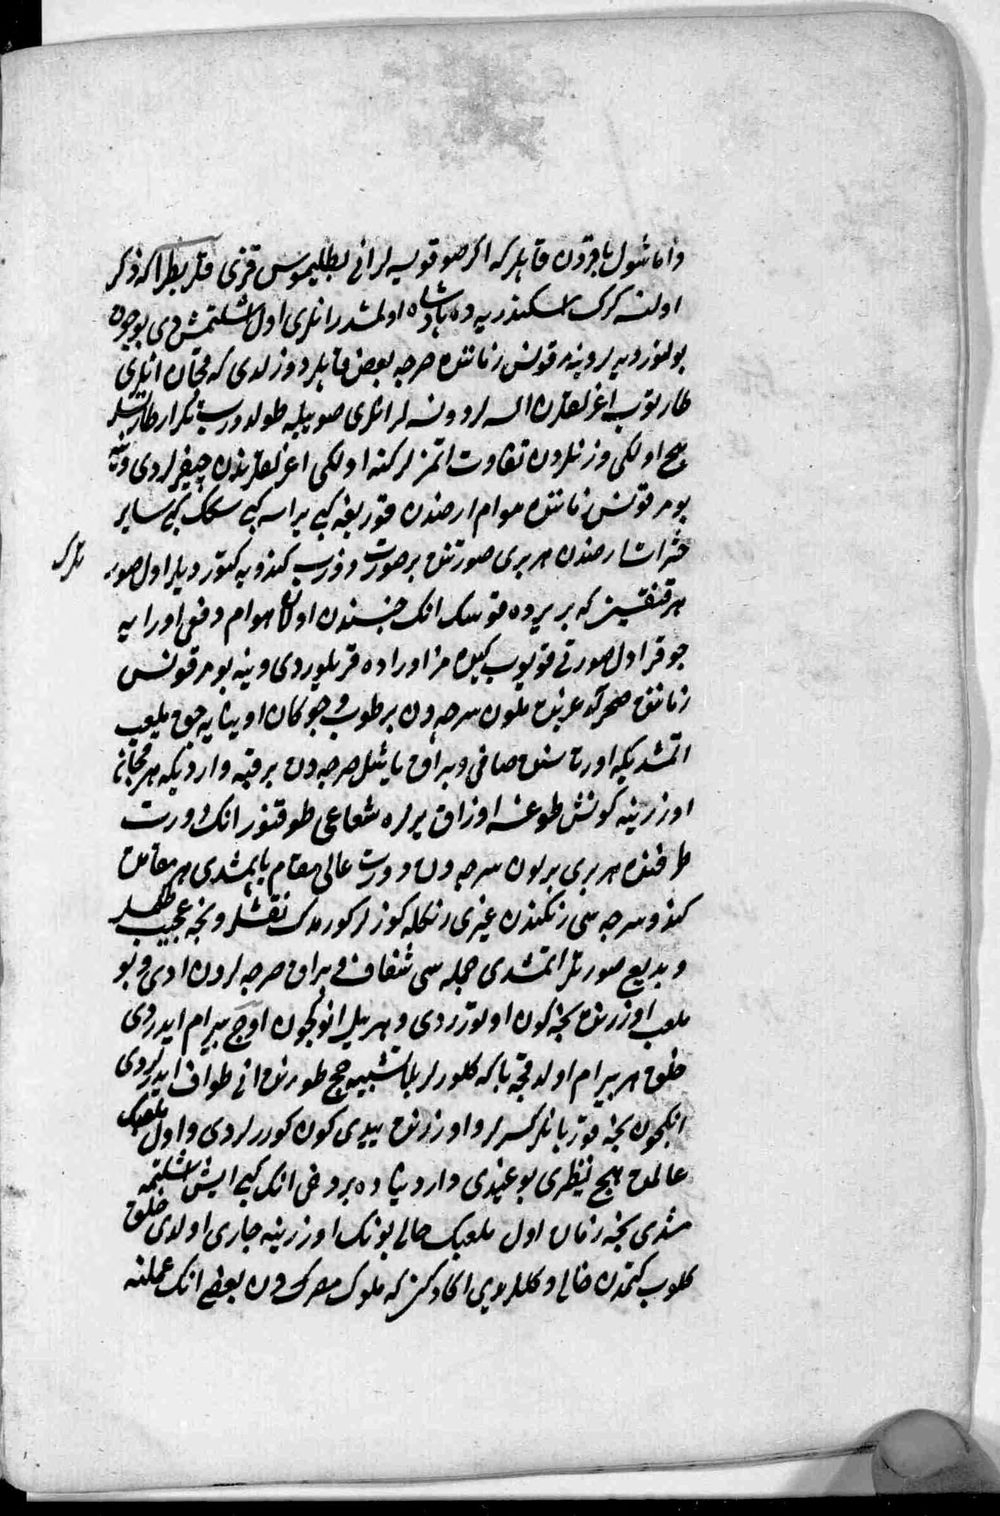 و اما شول باقردن قابلر که اکر صو قویسه لر انی بطلیموس قزی قلربطرا که ذکر
اولنسه کرک اسکندریه ده پادشاه اولمشدر انلری اول اشلتمش دی بو جون
بولنوردی یرو ینه مرقونس زماننده صرجه بعض قابلر دوزلدی که قچان انلری
طارتوب اغزلقلرن السه لر دونسه لر انلری صو ییله طولدورب تکرار طارتسلر
هیچ اولکی وزنلردن تفاوت اتمزلر کنه اولکی اغزلقلرندن چیقرلردی و ینه
بو مرقونس زماننده هوام ارضدن قوربغه کبی براسه کبی سکک کبی سایر
حشرات ارضدن هر بری صورتنده بر صورت دوزب کندویه کتوردیلر اول صور
تلرک
هر قنقیسن که بر یرده قوسک انک جنسندن اولان هوام دخی اورایه
جوقر اول صورتی قویوب کیده مز اوراده قریلوردی و ینه بو مرقونس
زماننده صحرای غربنده ملون سرجه دن بر طوب و چوکان اوینایه جق ملعب
اتمشدیکه اورتاسنده صافی و براق یاشل صرجه دن بر قبه وار دیکه هر قچان
اوزرینه کونش طوغسه اوزاق یرلره شعاعی طوقنور انک دورت
طرفنده هر بری بر لون سرجه دن دورت عالی مقام یاپمشدی هر مقامن
کندو سرجه سی رنکندن غیری رنکله کوزلر کورمدک نقشلر و نجه عجیب طلسملر
و بدیع صورتلر اتمشدی جمله سی شفاف و براق صرجه لردن ادی و بو
ملعب اوزرنده نجه کون اولوتوردی و هر ییل انوکچون اوچ بیرام ایدردی
خلق هر بیرام اولدقچه باکه کلورلر بلا تشبیه حج طورنده انی طواف ایدرلردی
انکچون نجه قربانلر کسرلر و اوزرنده ییدی کون کوررلردی و اول ملعبک
عالمده هیچ نظیری بوغیدی وار دنیاده بر دخی انک کبی ایش اشلنمه
مشدی نجه زمان اول ملعبک حالی بونک اوزرینه جاری اولدی خلق
کلوب کتمدن خالی دکللردی اکا دکین که ملوک مصردن بعضی انک عملنه